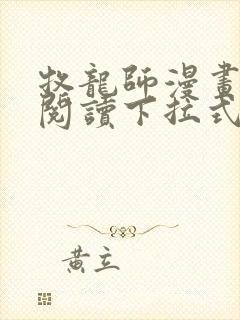 牧龍師漫畫
閱讀下拉式
黃立